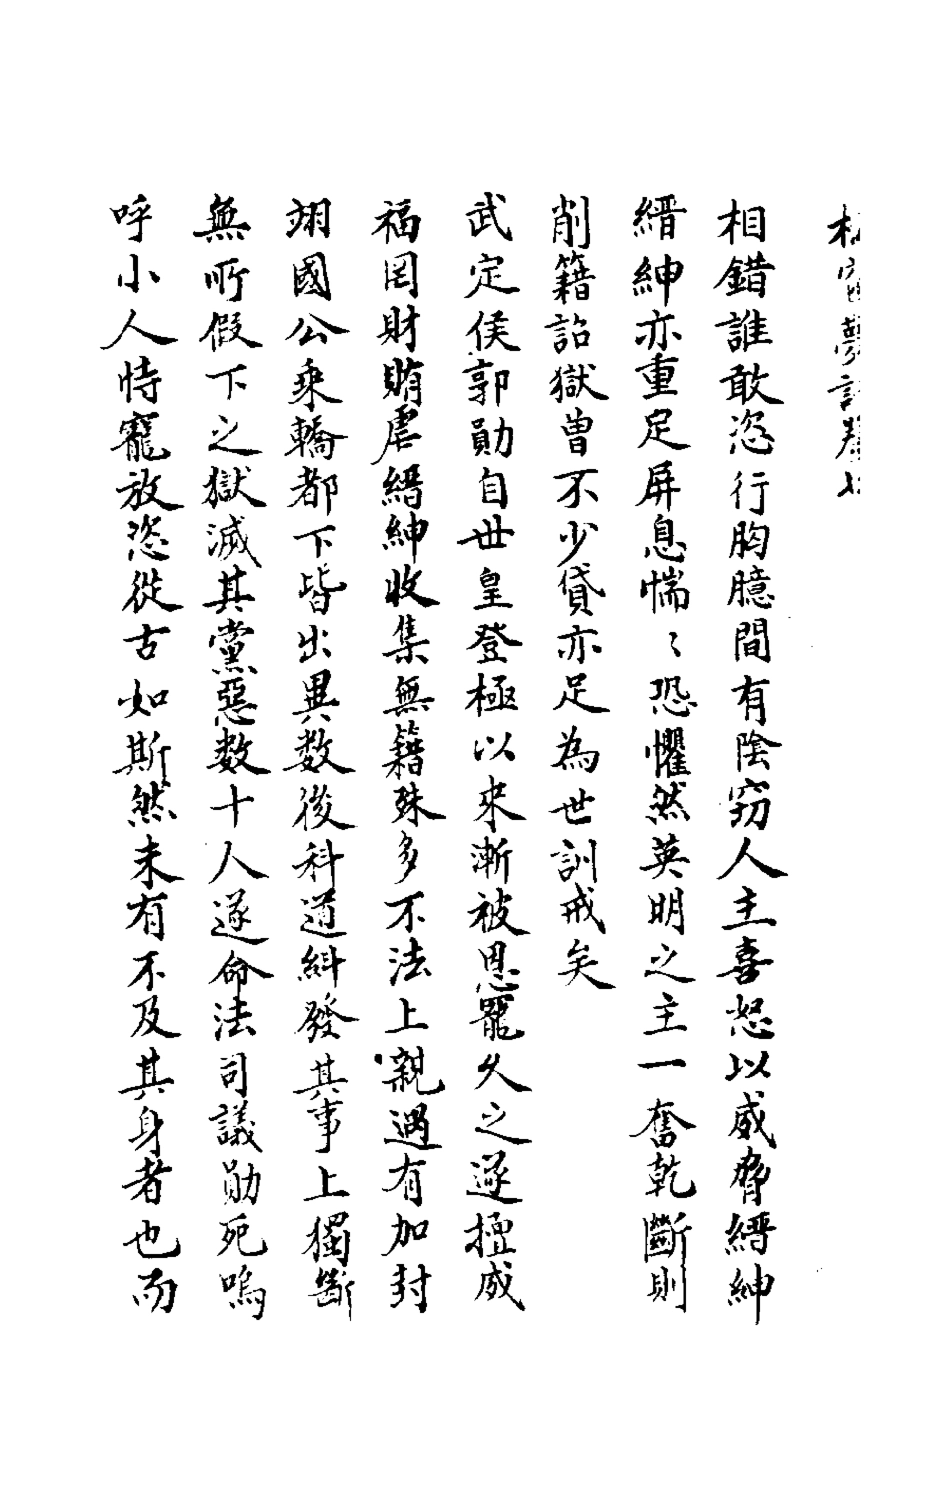 相錯誰敢恣行胸臆間有陰竊人主喜怒以威脅縉紳
縉紳亦重足屏息惴〻恐懼然英明之主一奮乾斷則
削籍詔獄曾不少貸亦足為世訓戒矣
武定侯郭勛自世皇登極以來漸被恩寵久之遂擅威
福罔財賄虐縉紳收集無籍殊多不法上親遇有加封
翊國公乘轎都下皆出異數後科道糾發其事上獨斷
無所假下之獄滅其黨惡數十人遂命法司議勛死嗚
呼小人恃寵放恣從古如斯然未有不及其身者也而